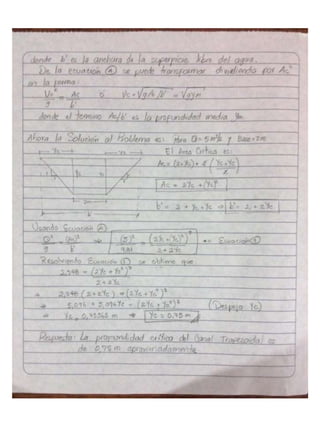 donde b' es la anchura de la superficie libre del agua.
De la ecuación Ⓐ se puede transformar dividiendo por Ac²
en la forma:
Vc²/g = Ac/b' ó Vc = √g Ac/b' = √g ym
donde el termino Ac/b' es la profundidad media ym
Ahora la Solución al Problema es: Para Q = 5 m³/s y Base = 2m
El Area Critica es:
Ac = (2×Yc) + 2 (Yc×Yc / 2)
Ac = 2Yc + (Yc)²
b' = 2 + Yc + Yc ⇒ b' = 2 + 2Yc
Usando Ecuación Ⓐ
Q²/g = (Ac)³/b' ⇒ (5)²/9.81 = (2Yc + Yc²)³/2+2Yc Ecuación ①
Resolviendo Ecuación ① se obtiene que
2,548 = (2Yc + Yc²)³
2+2Yc
2,548 (2+2Yc) = (2Yc + Yc²)³
5,096 + 5,096Yc = (2Yc + Yc²)³ (Despeja Yc)
⇒ Yc = 0.75 m
Respuesta: La profundidad critica del Canal Trapezoidal es
de 0,75 m aproximadamente.